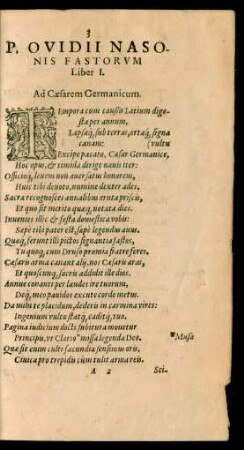 3
P. OVIDII NASO-
NIS FASTORVM
Liber I.
Ad Cæsarem Germanicum.
Tempora cum caussis Latium dige-
sta per annum,
Lapsaq́; sub terras, ortaq́; signa
canam: (vultu
Excipe pacato, Cæsar Germanice,
Hoc opus, & timidæ dirige nauis iter:
Officioq́; leuem non auersatus honorem,
Huic tibi deuoto numine dexter ades.
Sacra recognosces annalibus eruta priscis,
Et quo sit merito quæq; notata dies.
Inuenies illic & festa domestica vobis:
Sæpe tibi pater est, sæpe legendus auus.
Quæq́; ferunt illi pictos signantia fastos,
Tu quoq; cum Druso præmia fratre feres.
Cæsaris arma canant alij, nos Cæsaris aras,
Et quoscunq; sacris addidit ille dies.
Annue conanti per laudes ire tuorum,
Deq́; meo pauidos excute corde metus.
Da mihi te placidum, dederis in carmina vires:
Ingenium vultu statq́; caditq́; tuo.
Pagina iudicium docti subitura mouetur
Principis, vt Clario* missa legenda Deo. *Musa
Quæ sit enim culti facundia sensimus oris,
Ciuica pro trepidis cum tulit arma reis.
A 2 Sci-